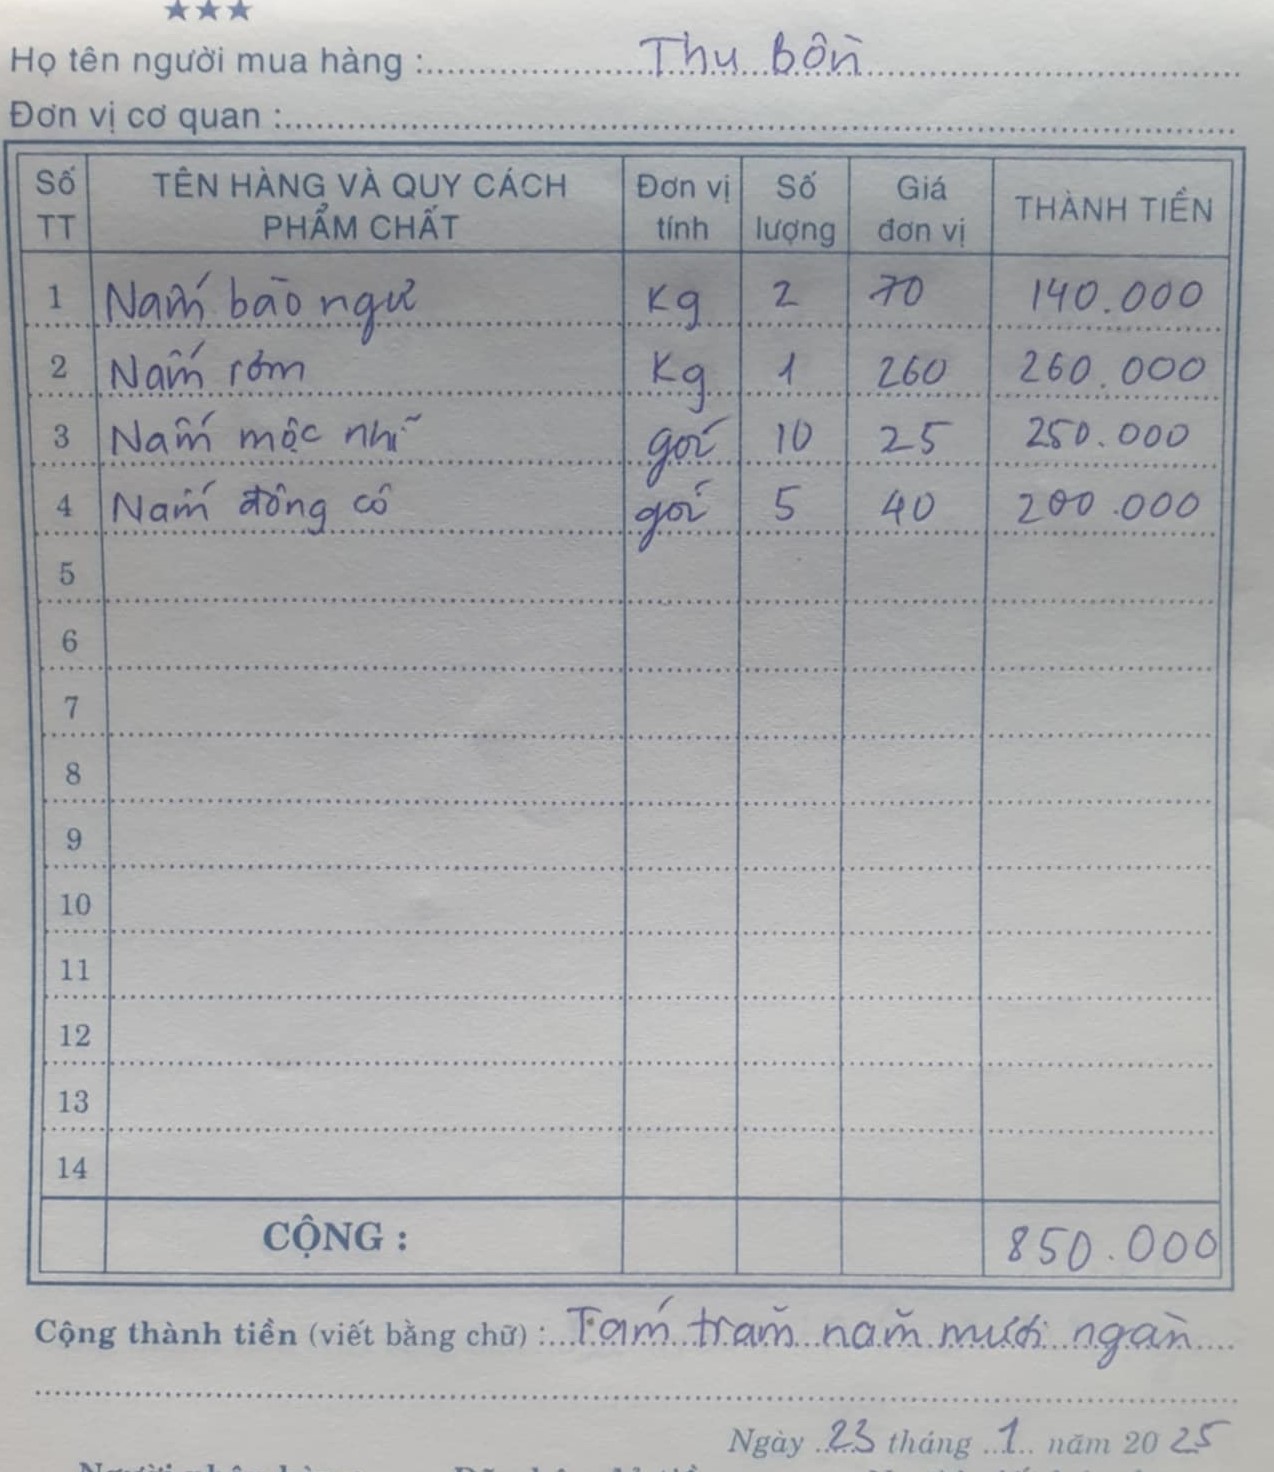 ★★★
Họ tên người mua hàng : Thu Bồn
Đơn vị cơ quan :
Số TT TÊN HÀNG VÀ QUY CÁCH PHẨM CHẤT Đơn vị tính Số lượng Giá đơn vị THÀNH TIỀN
1 Nấm bào ngư Kg 2 70 140.000
2 Nấm rơm Kg 1 260 260.000
3 Nấm mộc nhĩ gói 10 25 250.000
4 Nấm đông cô gói 5 40 200.000
5
6
7
8
9
10
11
12
13
14
CỘNG : 850.000
Cộng thành tiền (viết bằng chữ) : Tám trăm năm mươi ngàn
Ngày 23 tháng 1 năm 2025